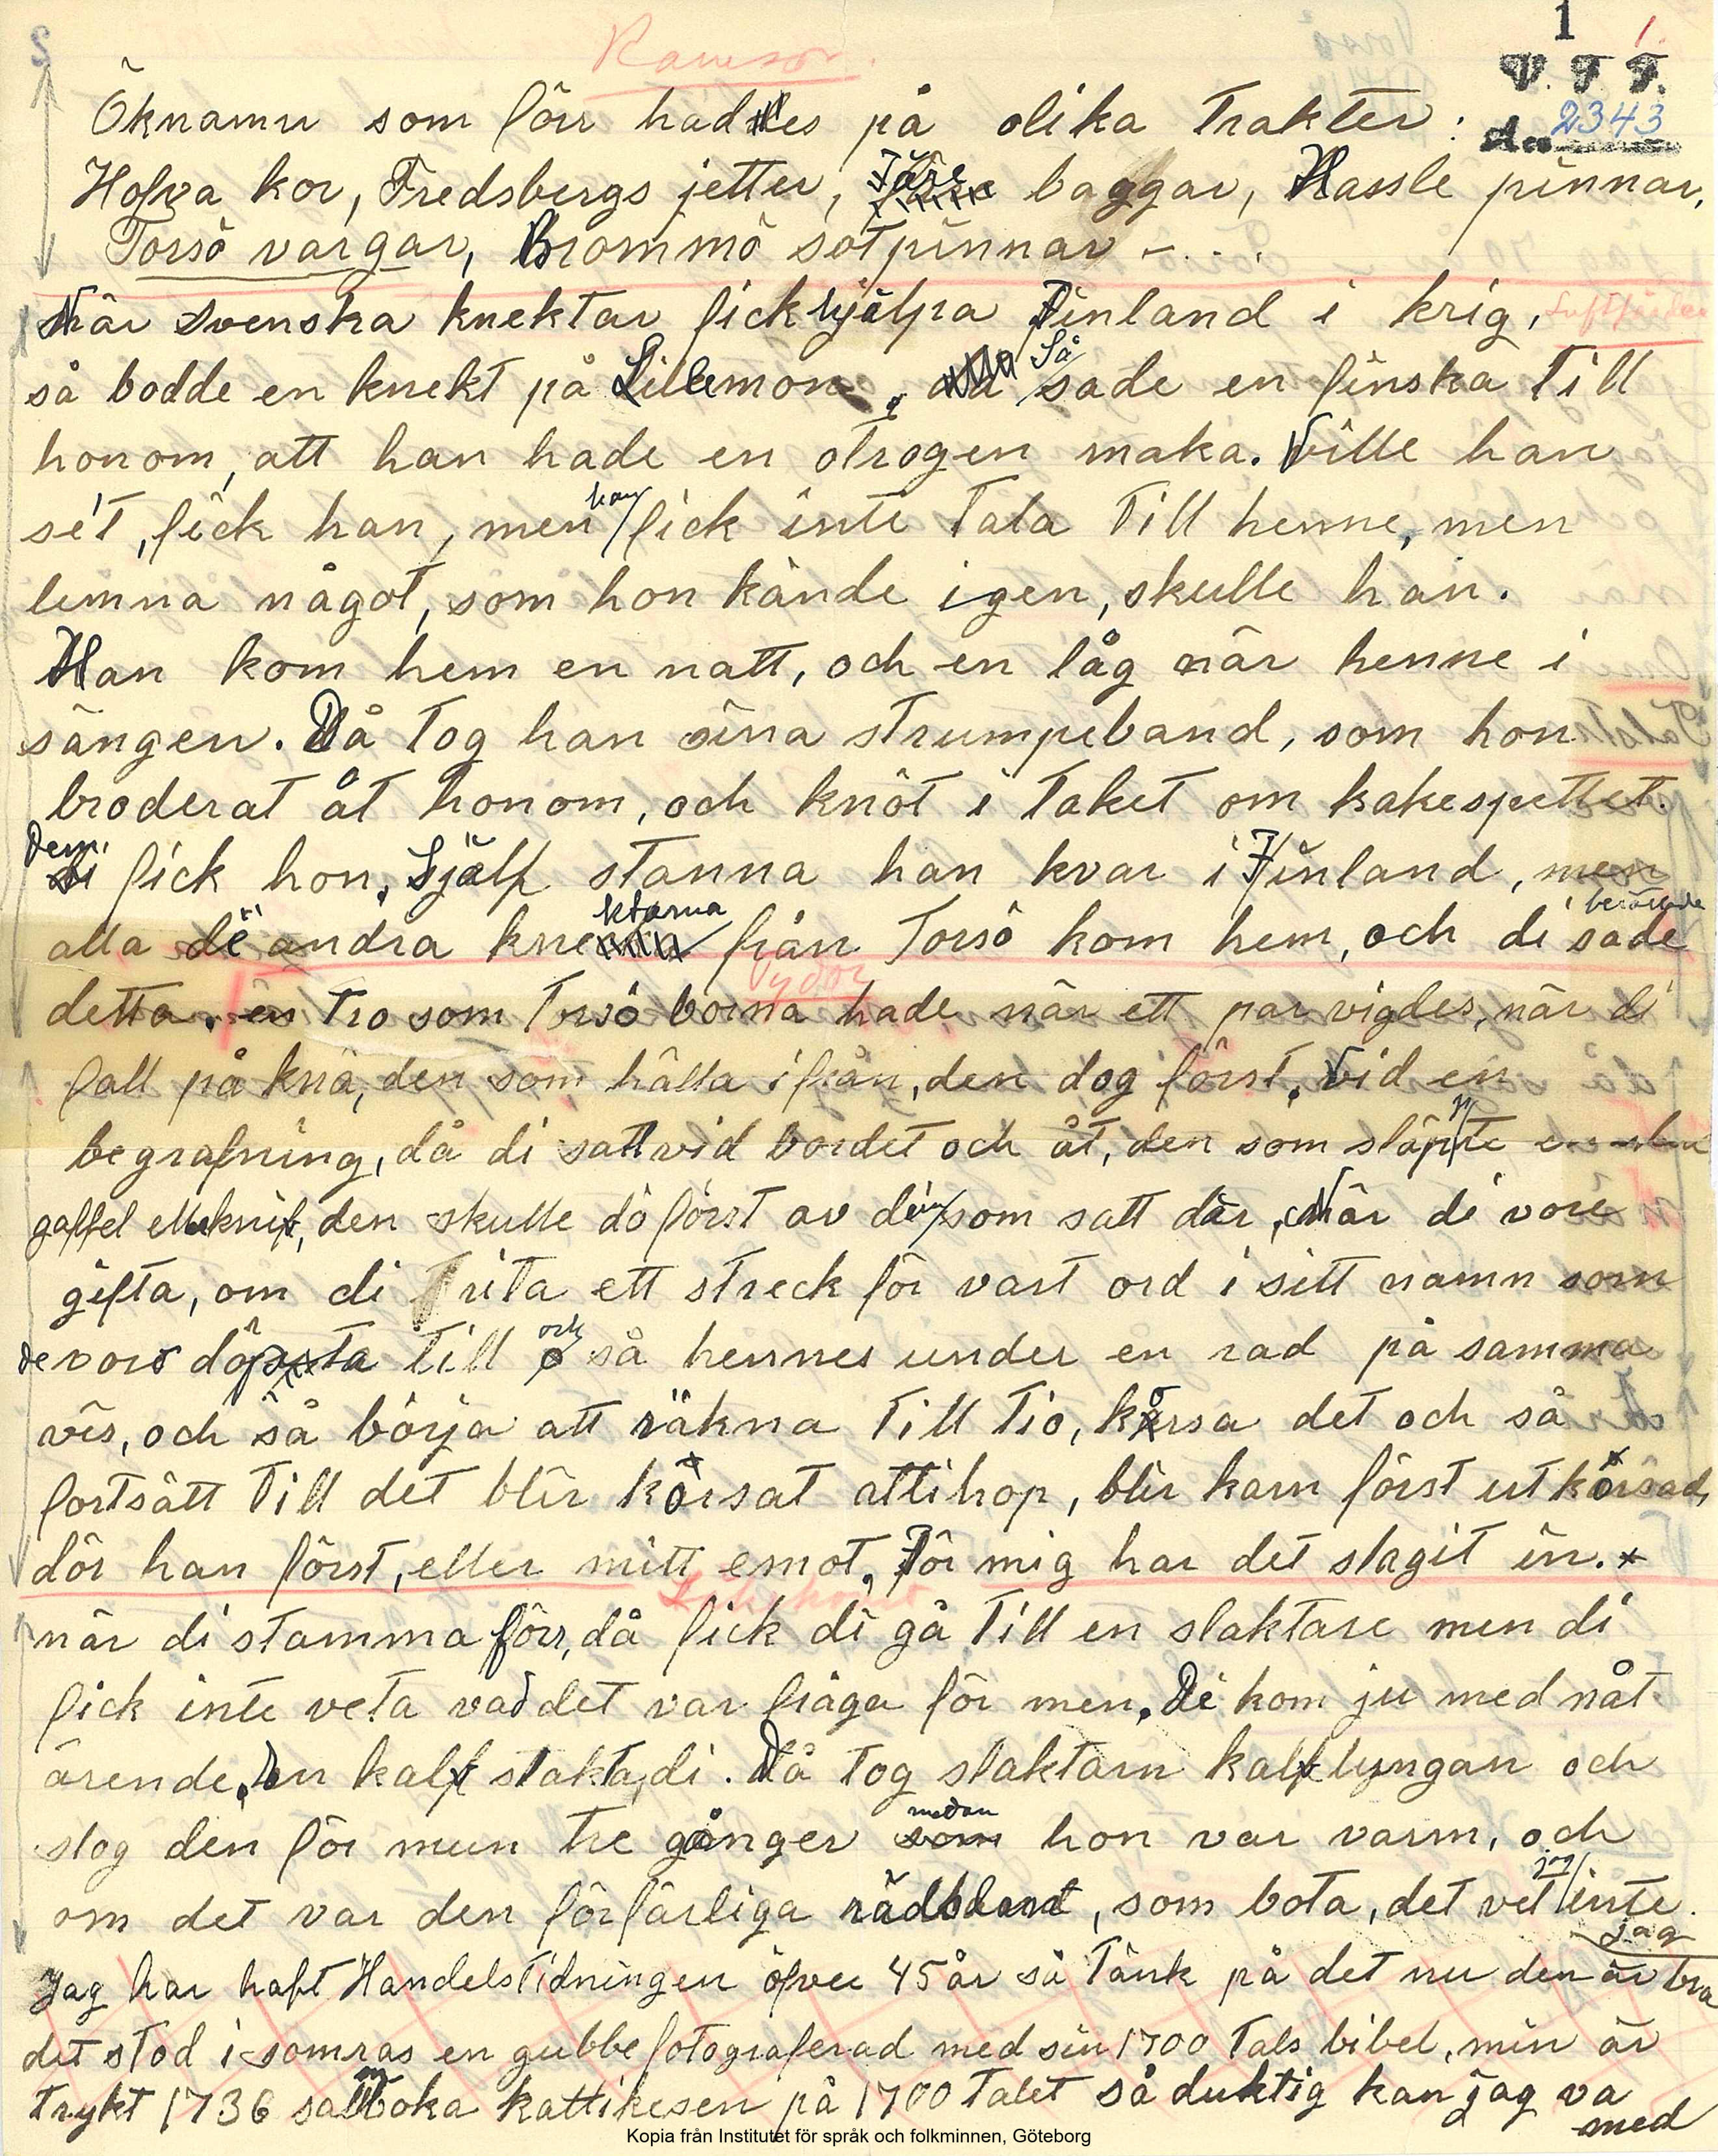 Ramsor.
1
1.
V. F. F.
Acc 2343
S
Öknamn som förr haddes på olika Trakter:
Hofva kor, Fredsbergs jetter, Färe baggar, Hassle pinnar,
Torsö vargar, Brommö sotpinnar - . . .
När svenska knektar fick hjälpa Finland i krig,
så bodde en knekt på Lillemon, Så sade en finska Till
honom, att han hade en otrogen maka. Ville han
se't, fick han, men han fick inte Tala Till henne, men
lemna något, som hon kände igen, skulle han.
Han kom hem en natt, och en låg när henne i
sängen. Då Tog han sina strumpeband, som hon
broderat åt honom, och knöt i Taket om kakespettet.
Dem fick hon. Själf stanna han kvar i Finland, men
alla de andra knektarna från Torsö kom hem, och di sade berättade
detta. en Tro som Torsö borna hade när ett par vigdes, när di
fall på knä, den som hälla ifrån, den dog först. Vid en
begrafning, då di satt vid bordet och åt, den som släppte en
gaffel eller knif, den skulle dö först av dem som satt där, När di vore
gifta, om di rita ett streck för vart ord i sitt namn som
de voro döpta Till och så hennes under en rad på samma
vis, och så börja att räkna Till Tio, kårsa det och så
fortsätt Till det blir korsat attihop, blir karn först utkorsad,
dör han först, eller mitt emot, För mig har det slagit in.
när di stamma förr, då fick di gå Till en slaktare men di
fick inte veta vad det var fråga för men. Di kom ju med nåt
ärende. En kalf slakta di. Då Tog slaktarn kalflungan och
slog den för mun Tre gånger medan hon var varm, och
om det var den förfärliga rädslan, som bota, det vet jag inte.
Jag har haft HandelsTidningen öfver 45 år så Tänk på det nu den är bra
jag
det stod i somras en gubbe fotograferad med sin 1700 Tals bibel, min är
Trykt 1736 salmboka kattikesen på 1700 Talet så duktig kan jag va
med
Kopia från Institutet för språk och folkminnen, Göteborg